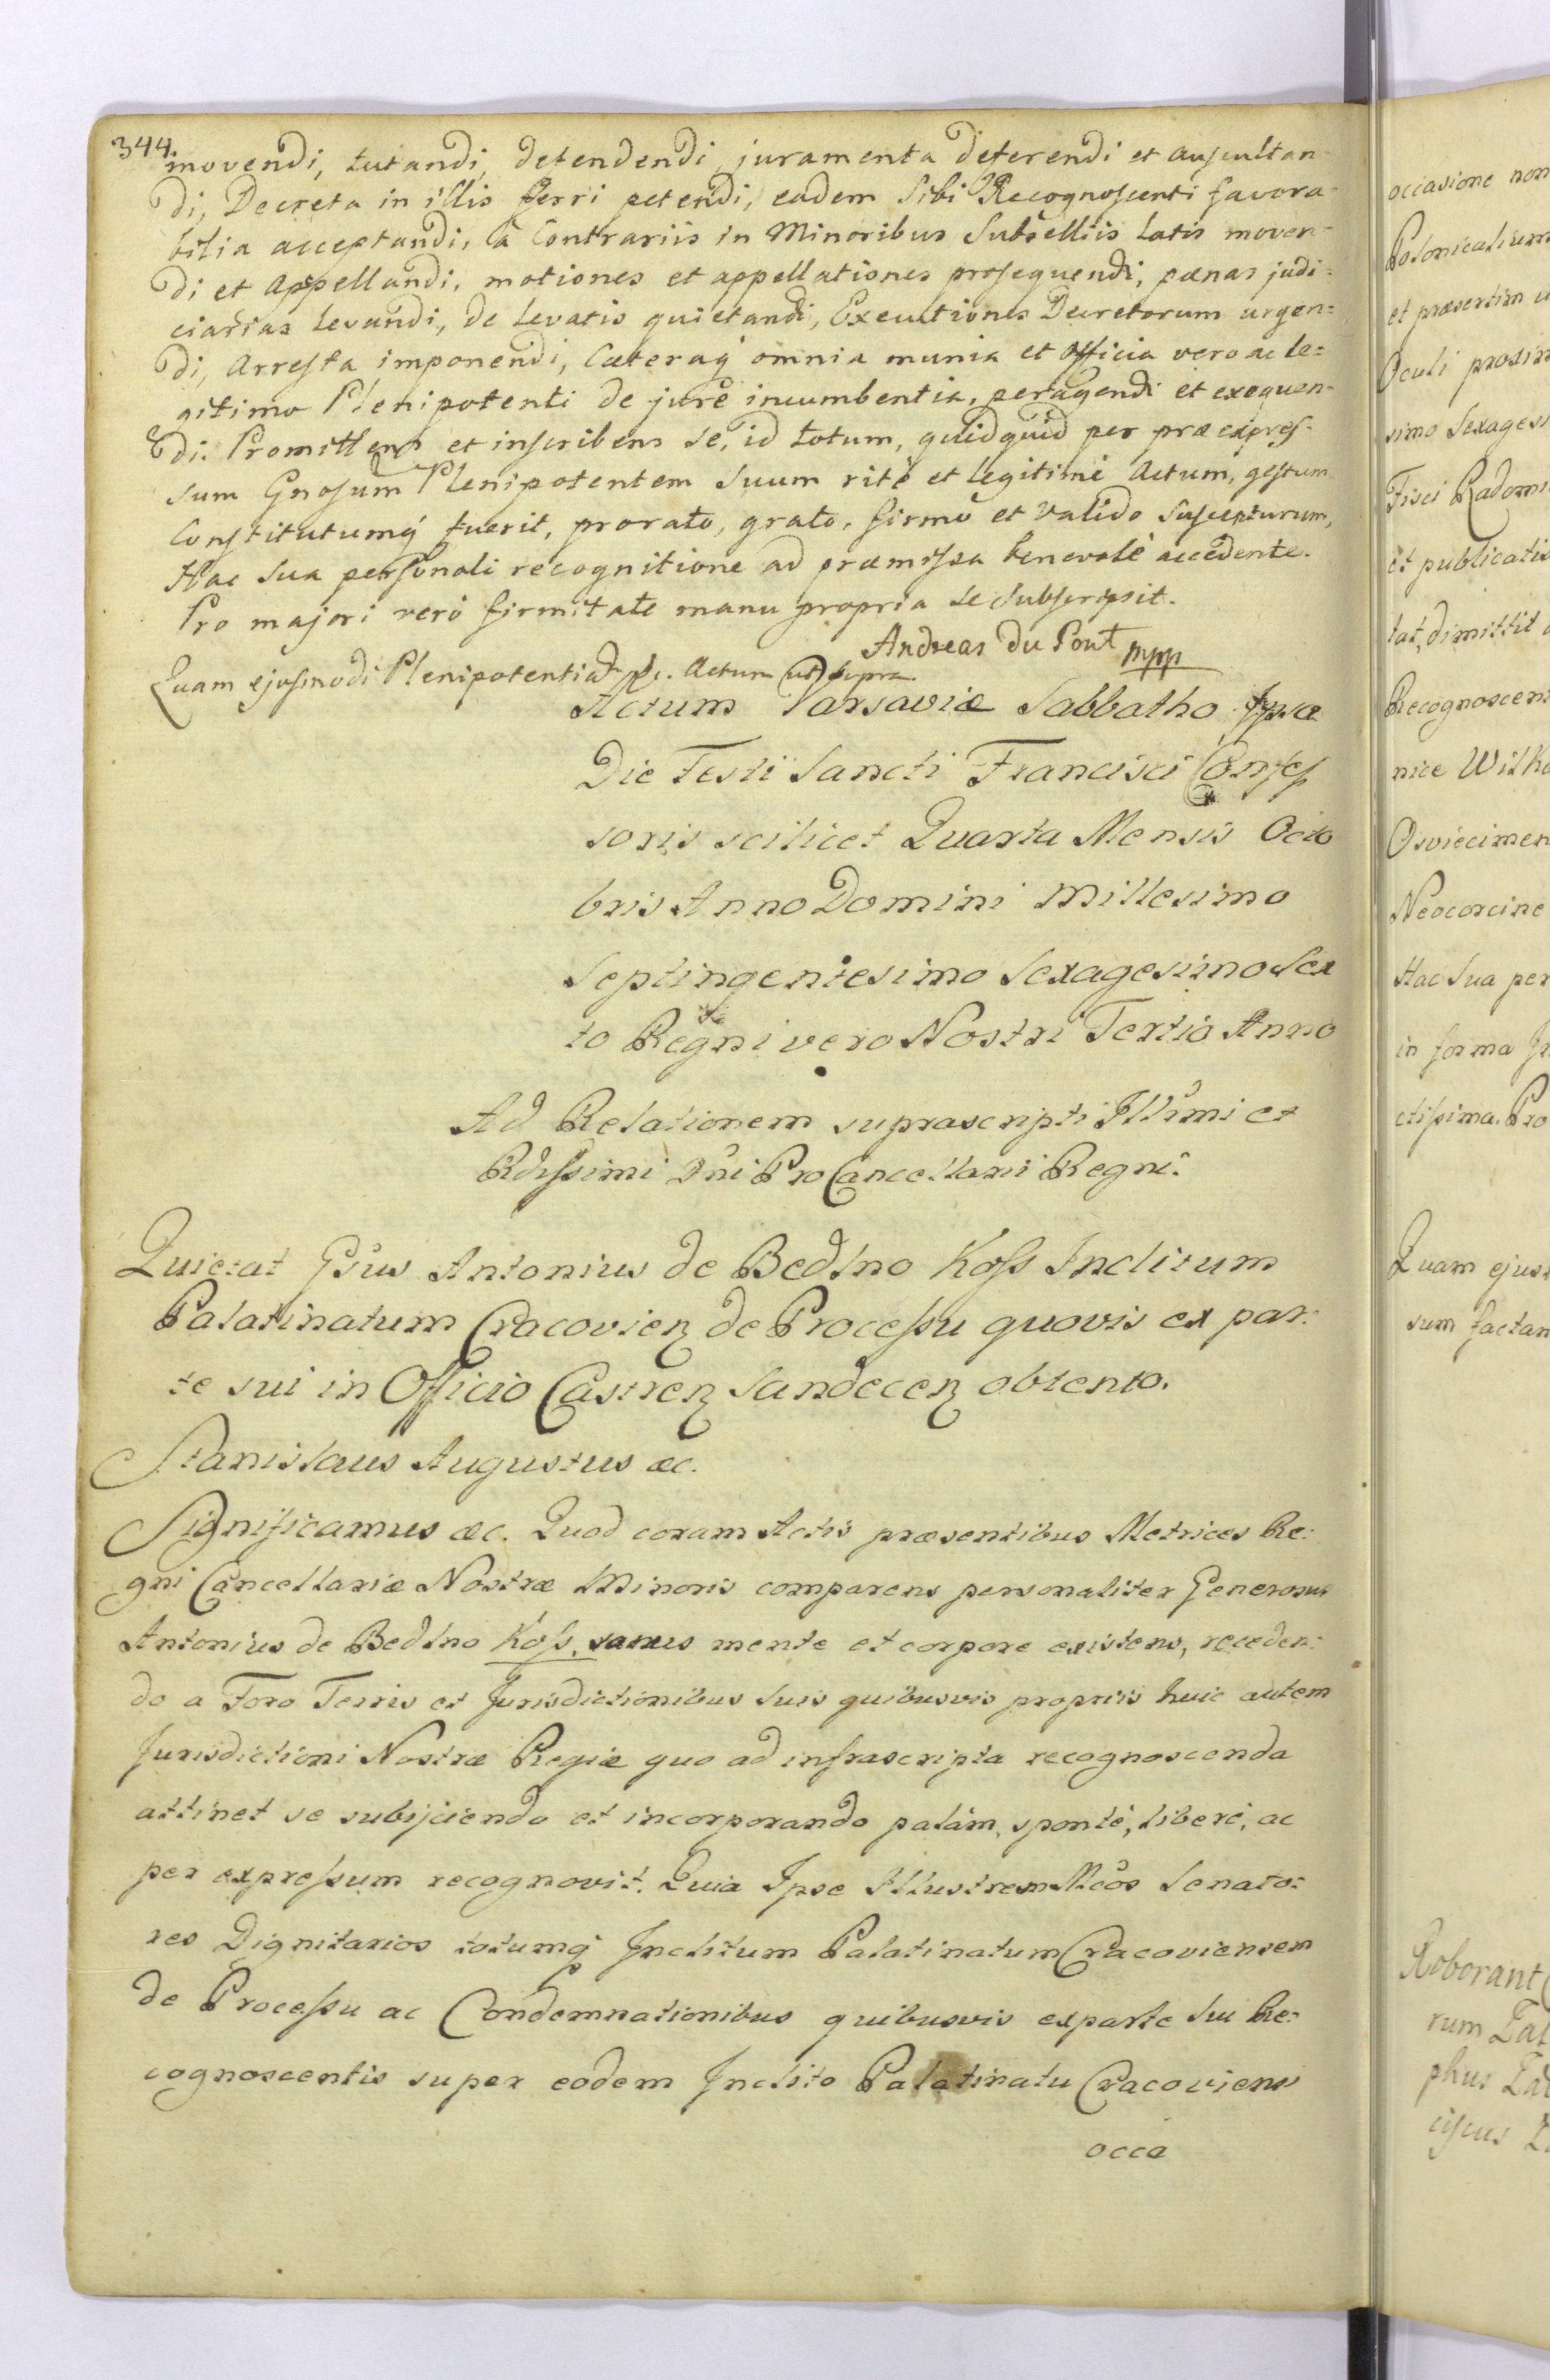 344.
movendi, tutandi, defendendi, juramenta deferendi et auscultan-
di, Decreta in illis ferri petendi, eadem Sibi Recognoscenti favora-
bilia acceptandi, à Contrariis in Minoribus Subselliis latis moven-
di et Appellandi, motiones et appellationes prosequendi, pænas judi-
ciarias levandi, de levatis quietandi, Executiones Decretorum urgen-
di, Arresta imponendi, Cæteraq omnia munia et officia vero ac le-
gitimo Plenipotenti de jure incumbentia, peragendi et exequen-
di. Promittens et inscribens se, id totum, quidquid per præexpres-
sum Gnosum Plenipotentem Suum ritè et legitimè Actum, gestum
Constitutumq fuerit, prorato, grato, firmo et valido Suscepturum,
Hac Sua personali recognitione ad præmissa benevolè accedente.
Pro majori verò firmitate manu propria se Subscripsit.
Andreas Du Pont mpp
Quam ejusmodi Plenipotentiad &c. Actum ut supra
Actum Varsaviæ Sabbatho Ipsa
Die Festi Sancti Francisci Confes
soris scilicet Quarta Mensis Octo
bris Anno Domini Millesimo
Septingentesimo Sexagesimo Sex
to Regni vero Nostri Tertio Anno
Ad Relationem suprascripti Illŭmi et
Rdissimi Dni ProCancellarii Regni.
Quietat Gsus Antonius de Bedlno Koss Inclitum
Palatinatum Cracovien de Processu quovis ex par-
te sui in Officio Castren Sandecen obtento.
Stanislaus Augustus &c.
Significamus &c. Quod coram Actis præsentibus Metrices Re-
gni Cancellariæ Nostræ Minoris comparens personaliter Generosus
Antonius de Bedlno Koss, sanus mente et corpore existens, receden-
do a Foro Terris et Jurisdictionibus Suis quibusvis propriis huic autem
Jurisdictioni Nostræ Regiæ quo ad infrascripta recognoscenda
attinet se subijciendo et incorporando palàm, spontè, liberè, ac
per expressum recognovit. Quia Ipse Illustrem Mcos Senato-
res Dignitarios totumq Inclitum Palatinatum Cracoviensem
de Processu ac Condemnationibus quibusvis ex parte Sui Re-
cognoscentis super eodem Inclito Palatinatu Cracoviensi
occa
occasione non
Polonicalium
et præsertim
Oculi proxim
simo Sexagesi
Fisci Radomi
et publicatis
tat, dimittit
Recognoscent
nice Witko
Osviecimen
Neocorcine
Hac Sua per
in forma
ctissima. Pro
Quam ejus
sum factam
Roborant
rum
phus
ciscus